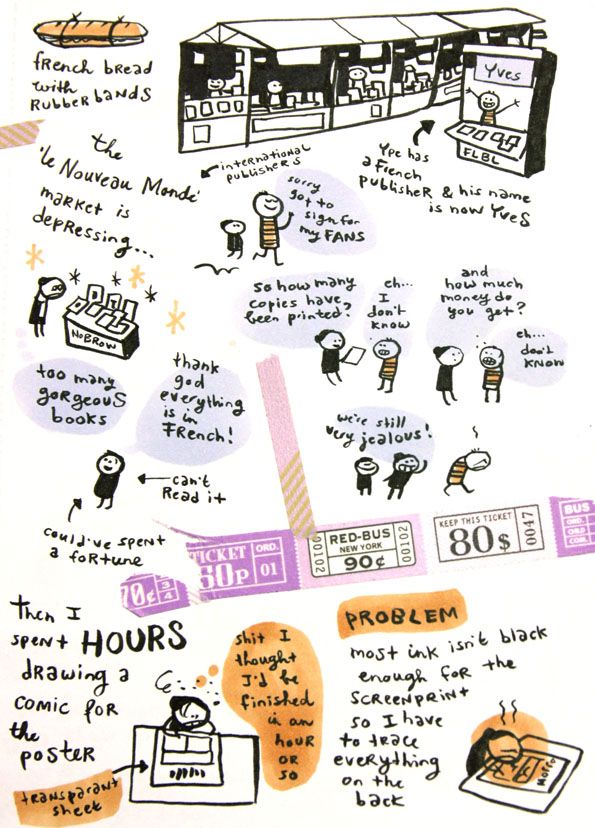 french bread
with
Rubber bands
Yves
FLBL
international
publishers
Ype has
a French
publisher & his name
is now Yves
the
'le Nouveau Monde'
market is
depressing...
sorry
got to
sign for
my FANS
NoBROW
so how many
copies have
been printed?
eh...
I
don't
know
and
how much
money do
you get?
eh...
don't
KNOW
too many
gorgeous
books
thank
god
everything
is in
French!
can't
Read it
could've spent
a fortune
we're still
very jealous!
70¢
3/4
TICKET
60p
ORD.
01
00102
RED-BUS
NEW YORK
90¢
00102
KEEP THIS TICKET
80$
0047
BUS
ORD.
CHD
COML
then I
spent HOURS
drawing a
comic for
the
poster
transparant
sheet
shit I
thought
I'd be
finished
in an
hour
or
so
PROBLEM
most ink isn't black
enough for the
screenprint
so I have
to trace
everything
on the
back